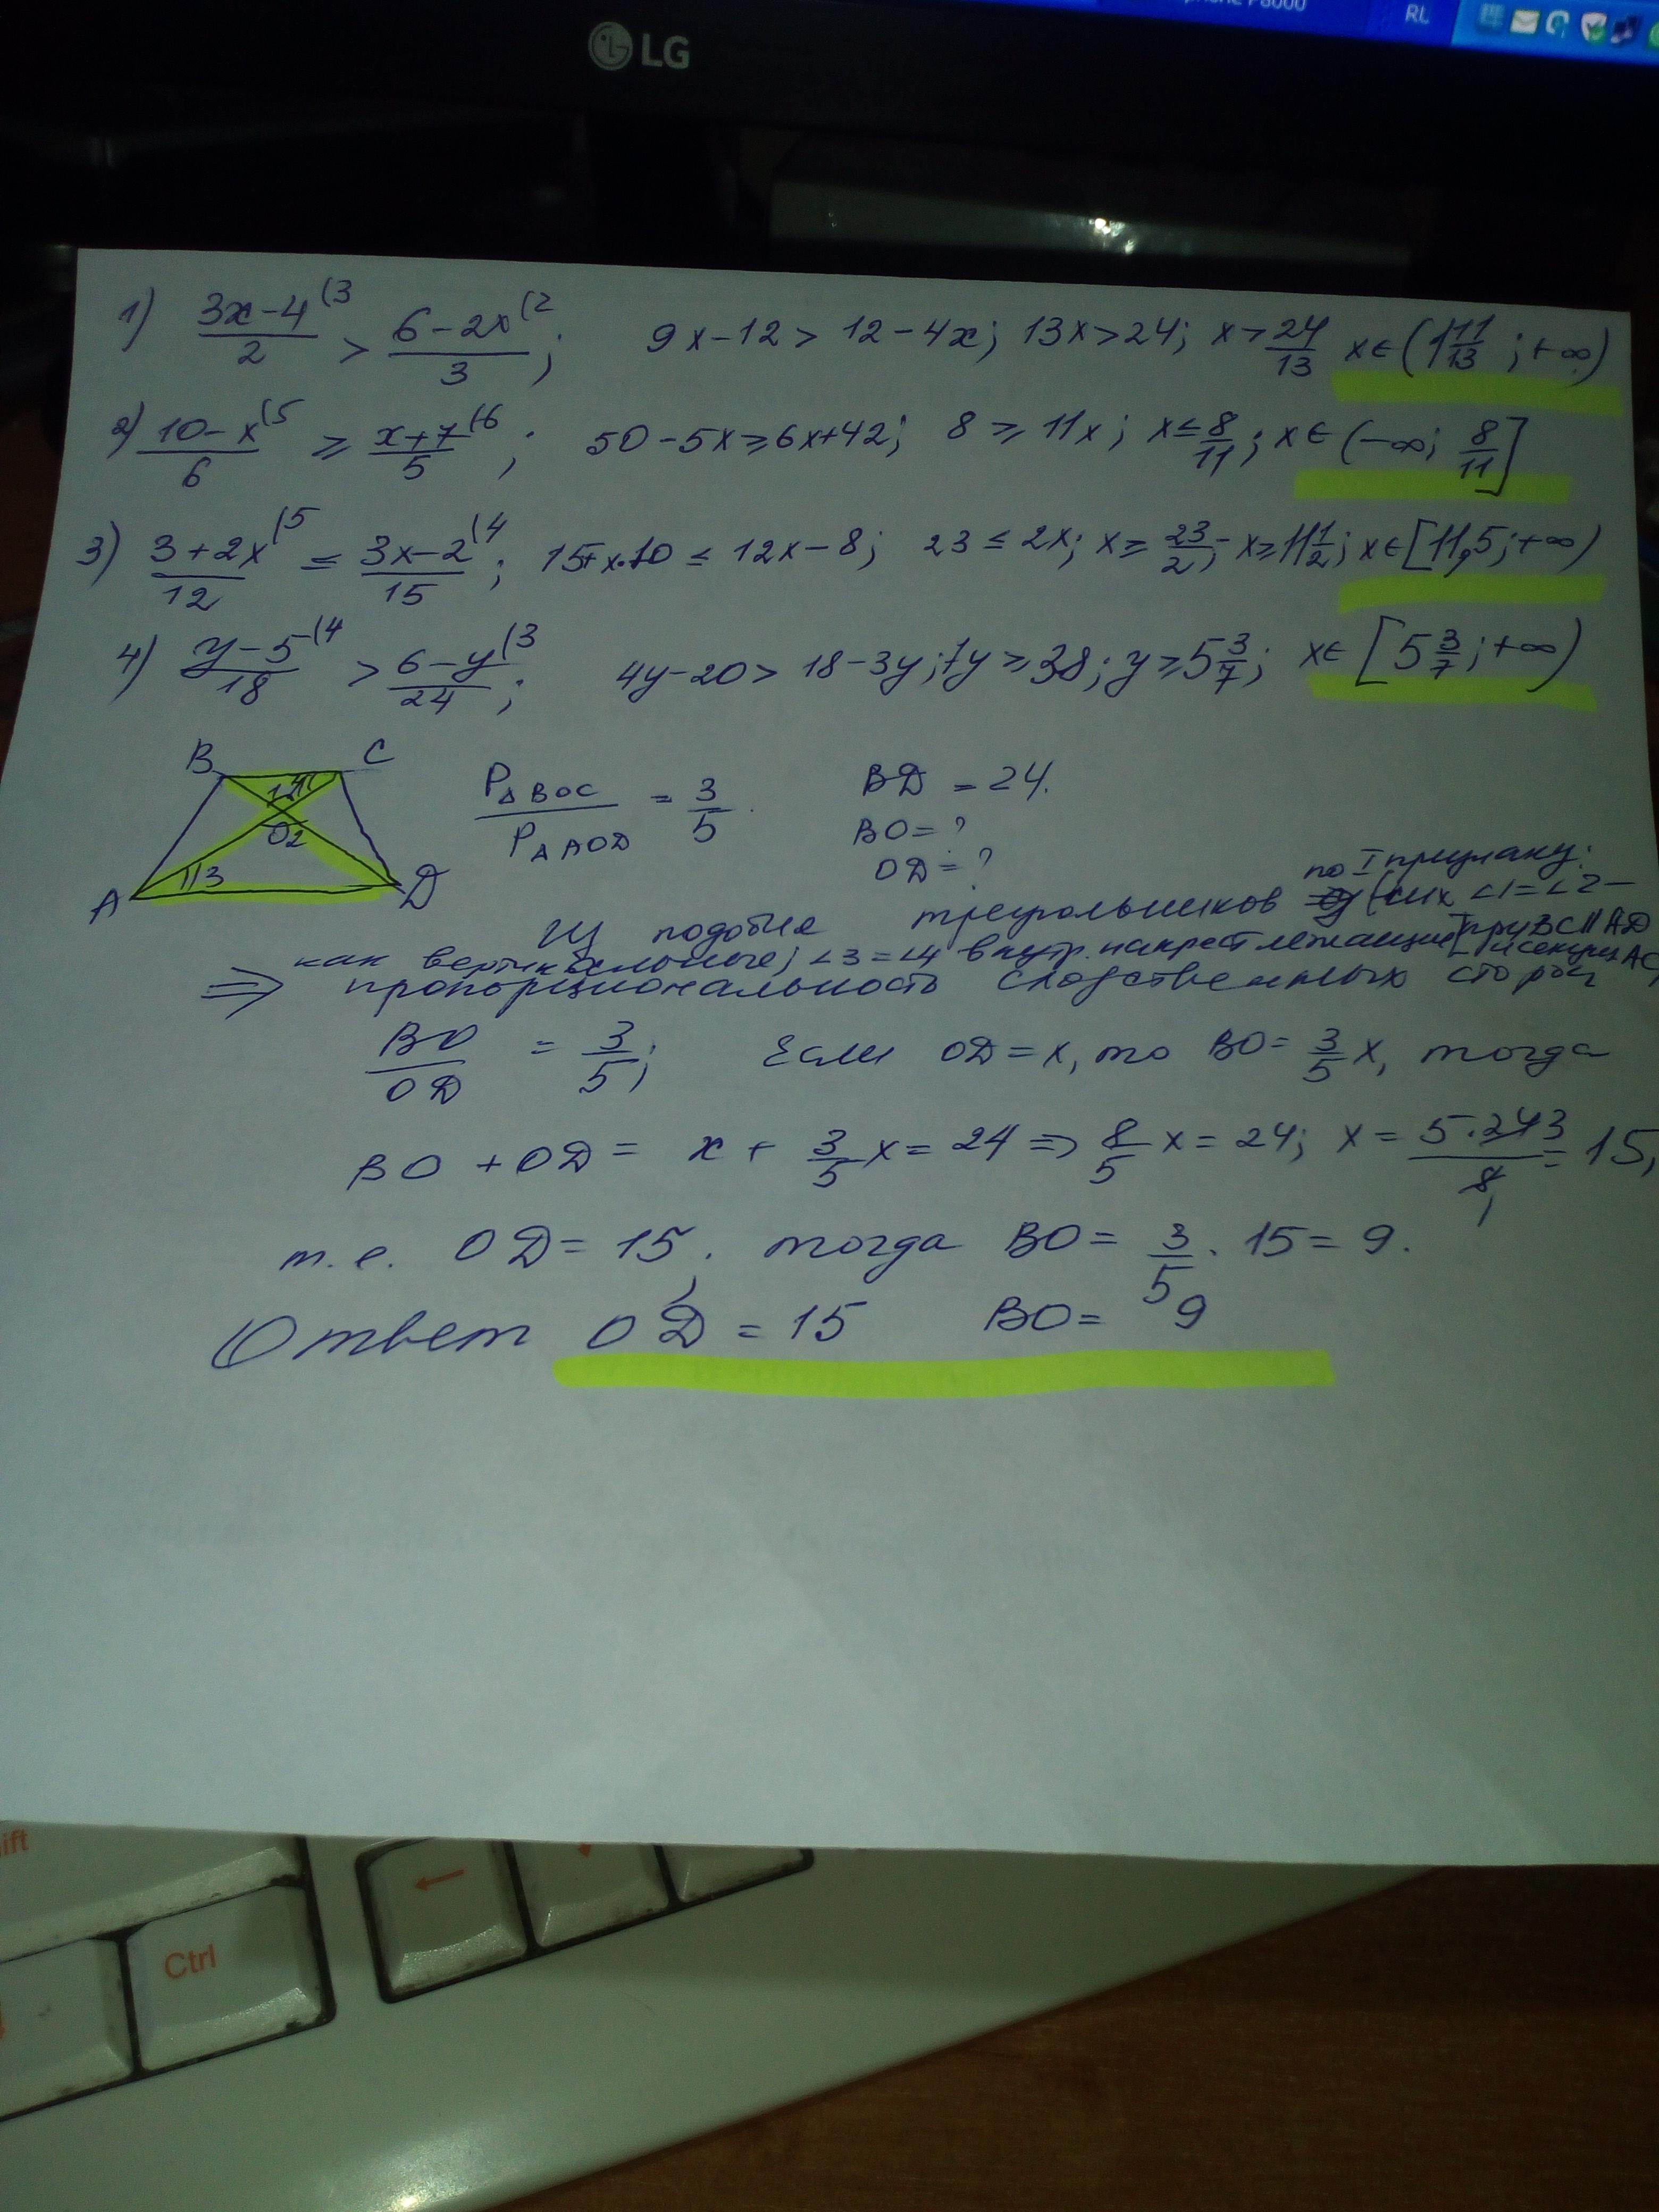 LG
RL
1) (3x-4)/2 (3 > (6-2x)/3 (2 ; 9x-12 > 12-4x; 13x>24; x>24/13 x∈(1 11/13 ;+∞)
2) (10-x)/6 (5 ⩾ (x+7)/5 (6 ; 50-5x⩾6x+42; 8 ⩾ 11x; x≤8/11; x∈(-∞; 8/11]
3) (3+2x)/12 (5 ≤ (3x-2)/15 (4 ; 15+x·10 ≤ 12x-8; 23 ≤ 2x; x⩾ 23/2; x⩾11 1/2; x∈[11,5;+∞)
4) (y-5)/18 (4 > (6-y)/24 (3 ; 4y-20> 18-3y; 7y⩾38; y⩾5 3/7; x∈ [5 3/7;+∞)
B C
1 4
O 2
3
A D
P△BOC / P△AOD = 3/5. BD = 24.
BO=?
OD=?
по I признаку:
Из подобия треугольников (в них ∠1=∠2-
как вертикальные; ∠3=∠4 внутр. накрест лежащие [при BC||AD
и секущ. AC
⇒ пропорциональность сходственных сторон
BO/OD = 3/5; Если OD=x, то BO= 3/5 x, тогда
BO+OD= x + 3/5 x= 24 ⇒ 8/5 x= 24; x= 5·24 3/8 1 = 15,
т.е. OD= 15, тогда BO= 3/5 · 15= 9.
Ответ OD = 15 BO= 9
ift
Ctrl
←